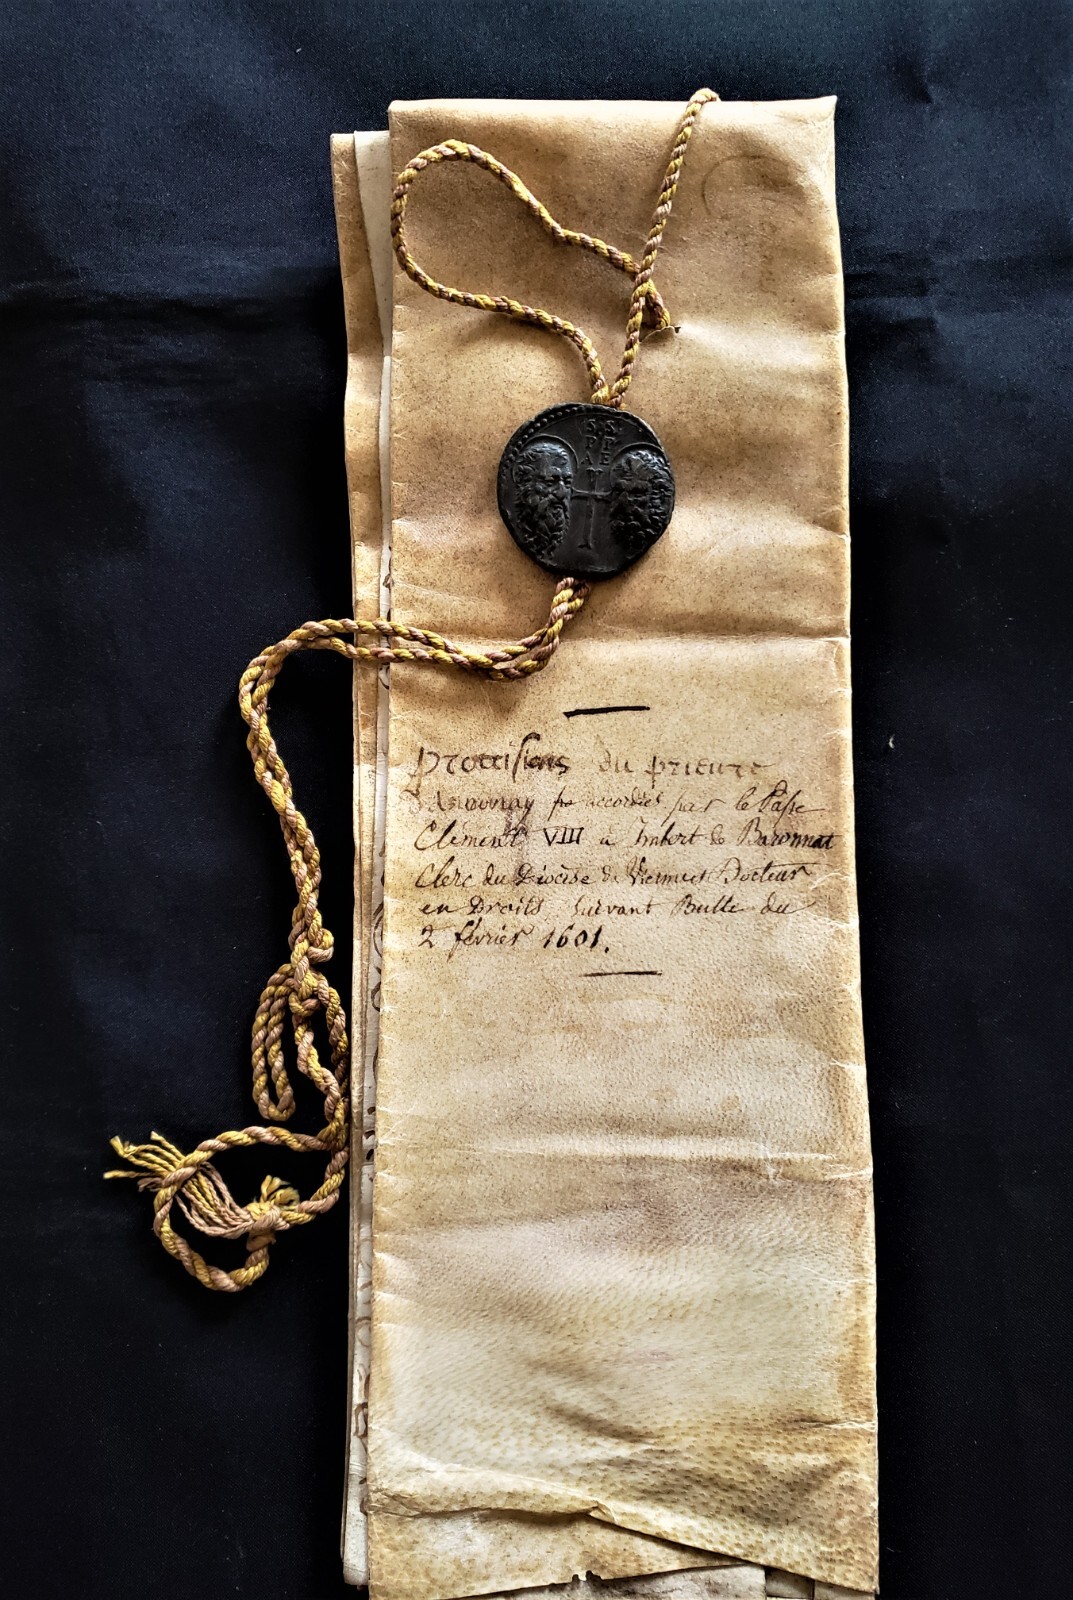 S S
P P
A E
Provisions du prieuré
d'Annonay accordées par le Pape
Clément VIII à Imbert de Baronnat
Clerc du Diocèse de Vienne et Docteur
en Droits suivant Bulle du
2 février 1601.